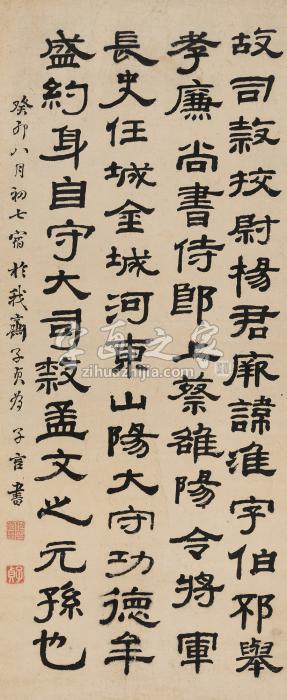 故司隷挍尉楊君厥諱淮字伯邳舉
孝廉尚書侍郎上蔡雒陽令將軍
長史任城金城河東山陽大守功德牟
盛約身自守大司隷孟文之元孫也
癸卯八月初七宿於我齋子貞為子官書
字画之家
zihuazhijia.com